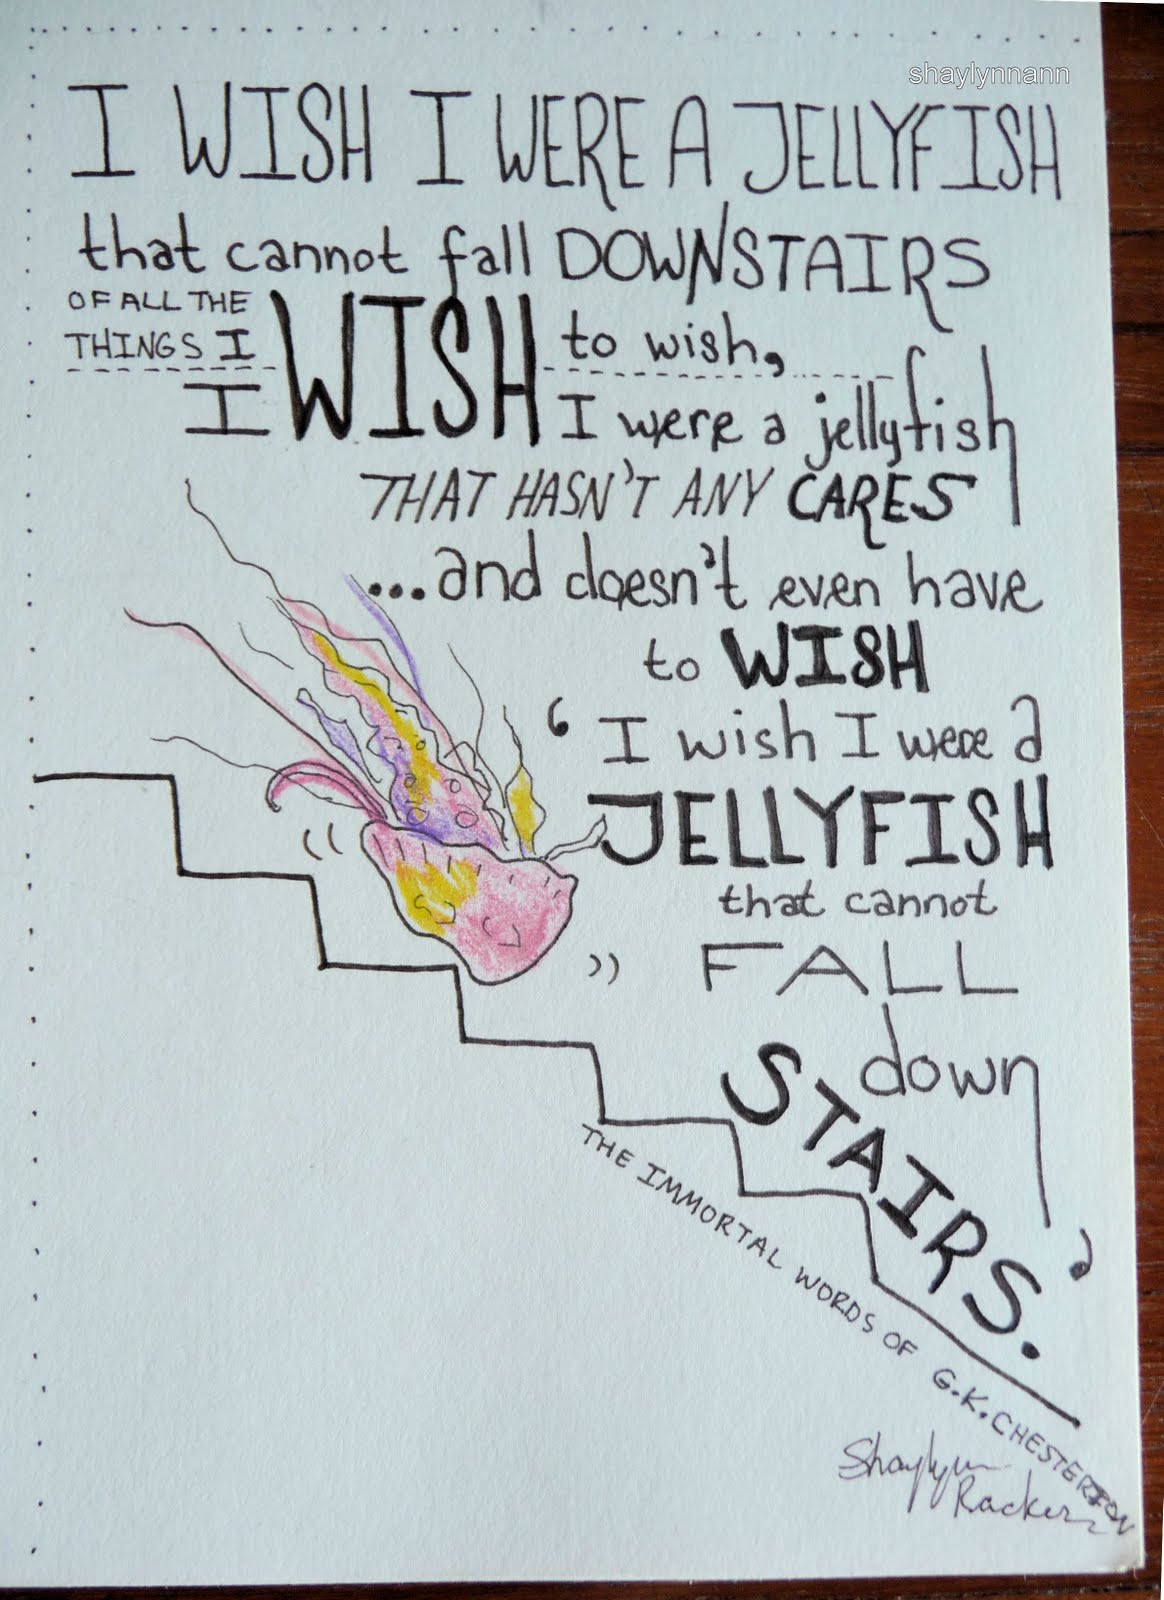 shaylynnann
I WISH I WERE A JELLYFISH
that cannot fall DOWNSTAIRS
OF ALL THE
THINGS I
WISH to wish,
I
I were a jellyfish
THAT HASN'T ANY CARES
...and doesn't even have
to WISH
'I wish I were a
JELLYFISH
that cannot
FALL
down
STAIRS.'
THE IMMORTAL WORDS OF G.K. CHESTERTON
Shaylynn
Racker